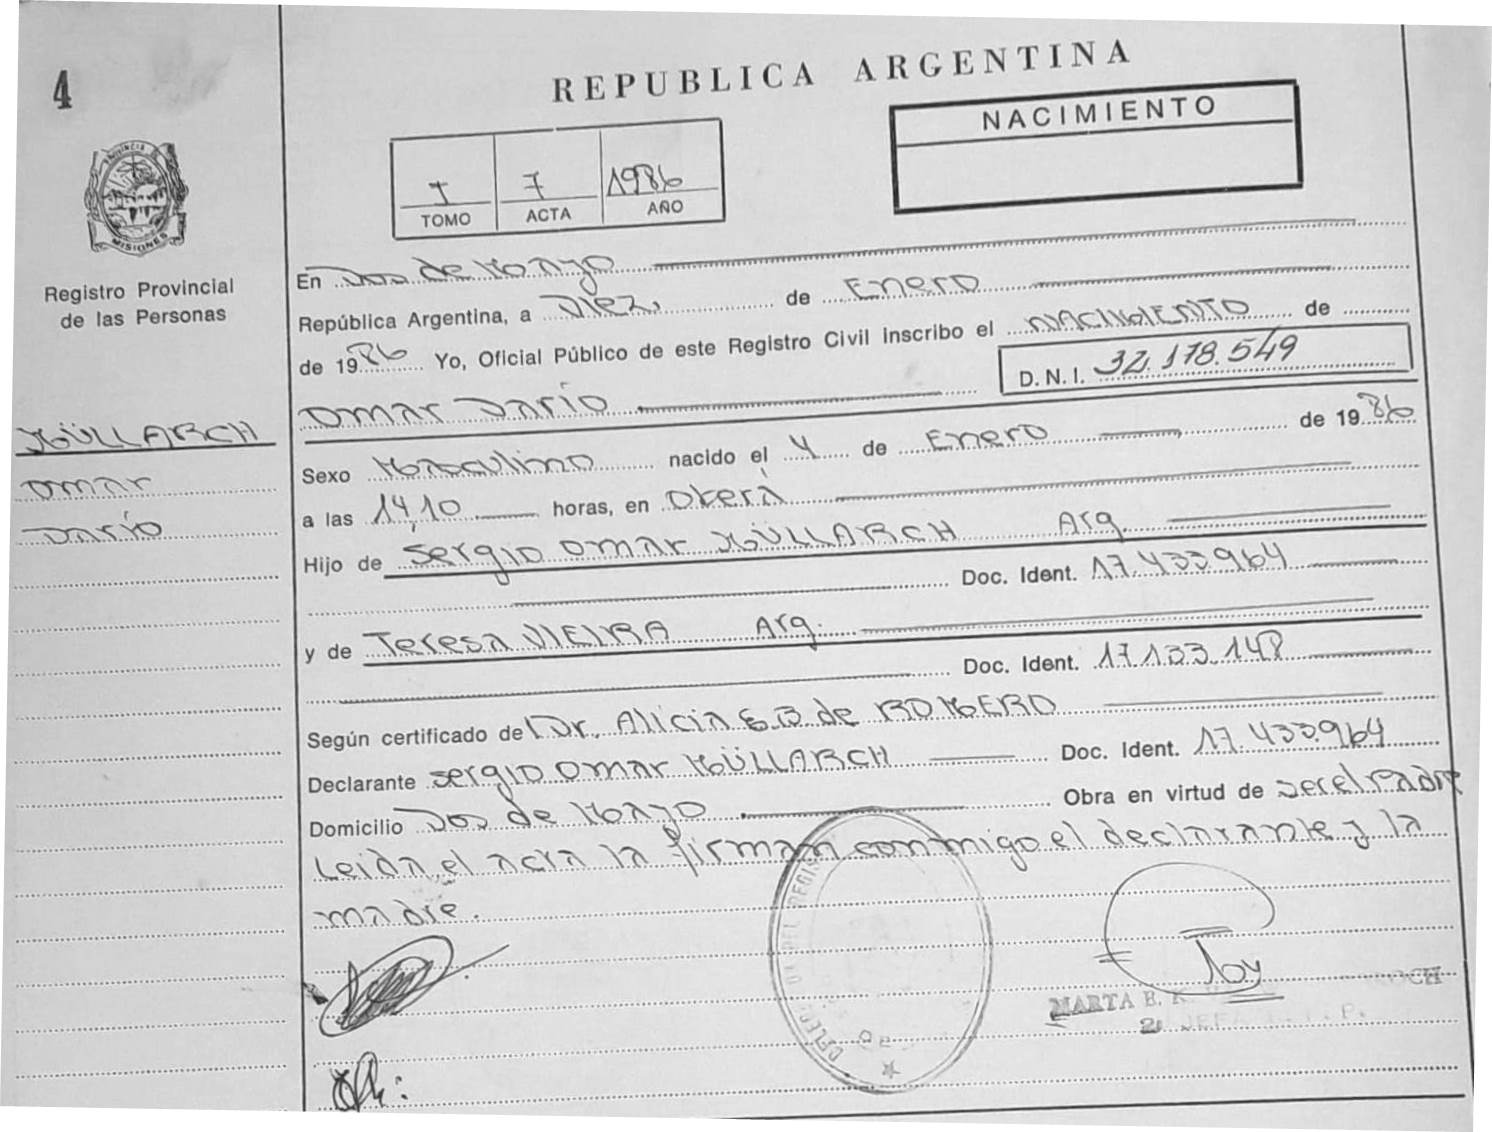 4
REPUBLICA ARGENTINA
NACIMIENTO
I 7 1986
TOMO ACTA AÑO
PROVINCIA
MISIONES
Registro Provincial
de las Personas
MÜLLARCH
Omar
Darío
En Dos de Mayo
República Argentina, a Diez de Enero
de 1986 Yo, Oficial Público de este Registro Civil Inscribo el NACIMIENTO de
D. N. I. 32.178.549
Omar Darío
Sexo Masculino nacido el 4 de Enero de 1986
a las 14,10 horas, en Oberá
Hijo de Sergio Omar MÜLLARCH Arg.
Doc. Ident. 17.433.964
y de Teresa VIEIRA Arg.
Doc. Ident. 17.133.148
Según certificado de Dr. Alicia E.B de ROMERO
Declarante Sergio Omar MÜLLARCH Doc. Ident. 17.433.964
Domicilio Dos de Mayo Obra en virtud de ser el Padre
Leída el acta la firman conmigo el declarante y la
madre.
MARTA E. K